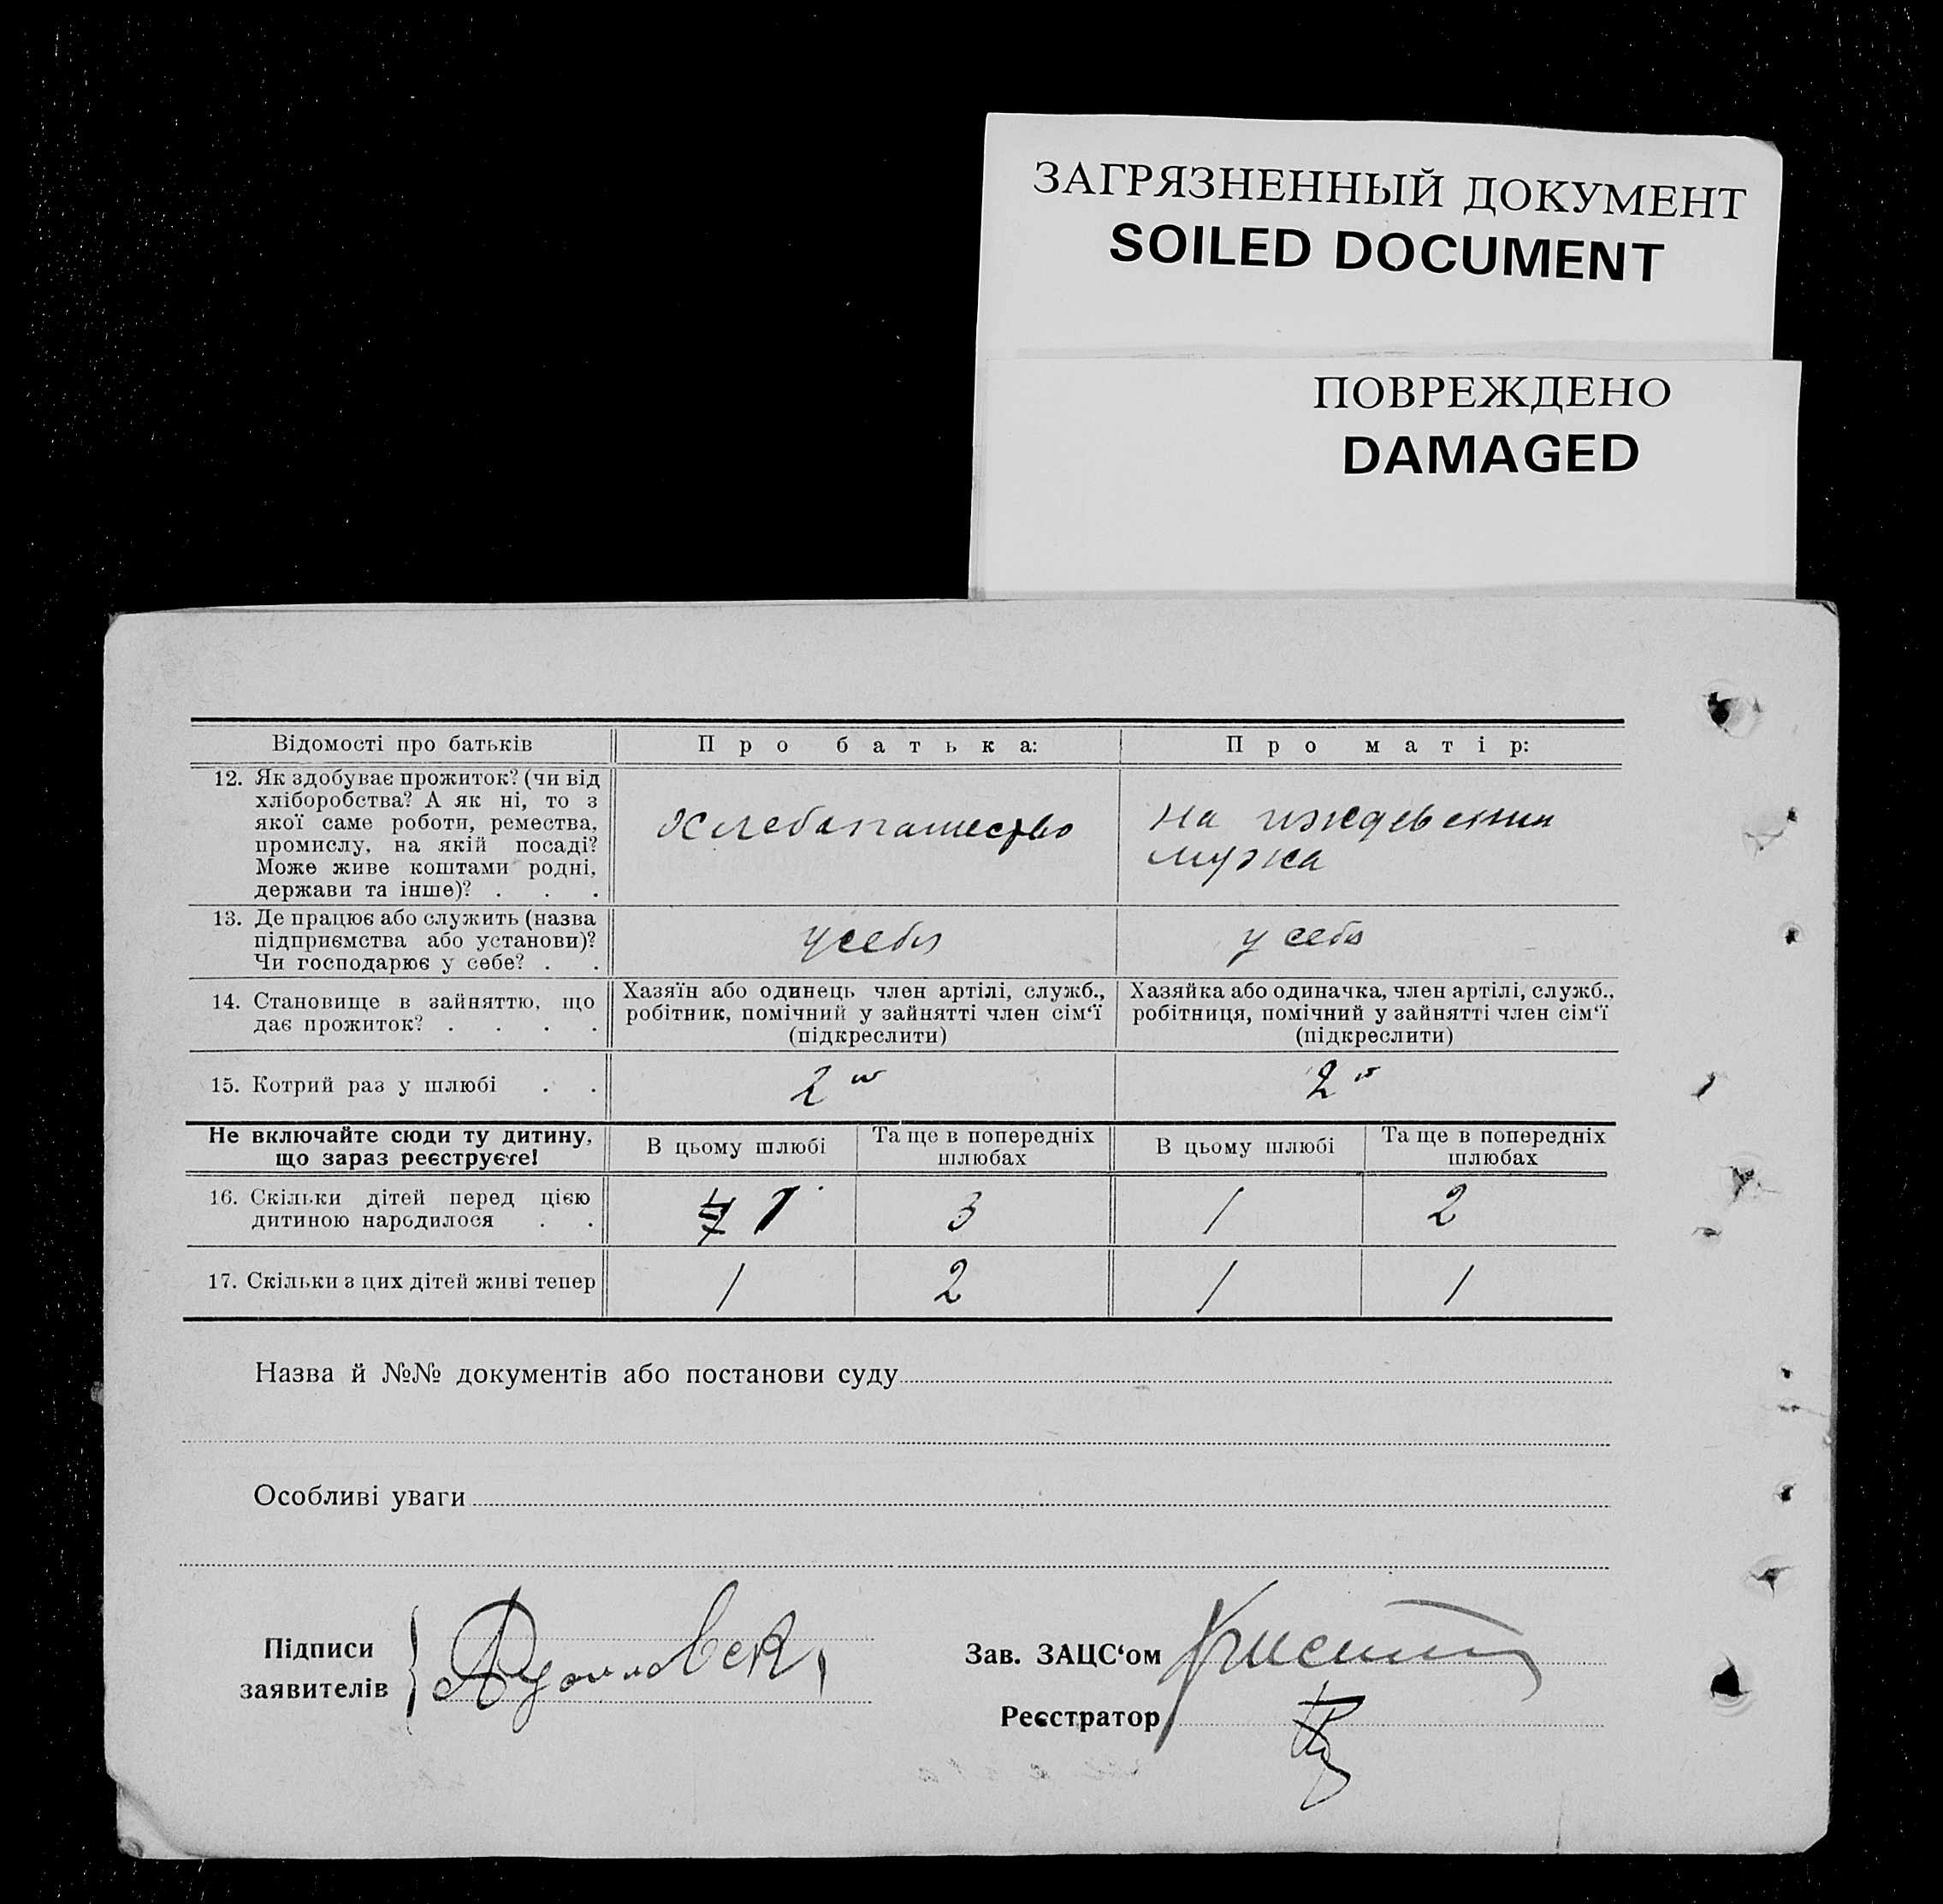 ЗАГРЯЗНЕННЫЙ ДОКУМЕНТ
SOILED DOCUMENT
ПОВРЕЖДЕНО
DAMAGED
Відомості про батьків
Про батька:
Про матір:
12. Як здобуває прожиток? (чи від
хліборобства? А як ні, то з
якої саме роботи, ремества,
промислу, на якій посаді?
Може живе коштами родні,
держави та інше)? . . .
Хлебапашество
на иждевении
мужа
13. Де працює або служить (назва
підприємства або установи)?
Чи господарює у себе? . .
у себя
у себя
14. Становище в зайняттю, що
дає прожиток? . . . .
Хазяїн або одинець член артілі, служб.,
робітник, помічний у зайнятті член сім‘ї
(підкреслити)
Хазяйка або одиначка, член артілі, служб.,
робітниця, помічний у зайнятті член сім‘ї
(підкреслити)
15. Котрий раз у шлюбі . .
2
2
Не включайте сюди ту дитину,
що зараз реєструєте!
В цьому шлюбі
Та ще в попередніх
шлюбах
В цьому шлюбі
Та ще в попередніх
шлюбах
16. Скільки дітей перед цією
дитиною народилося . .
1
3
1
2
17. Скільки з цих дітей живі тепер
1
2
1
1
Назва й №№ документів або постанови суду
Особливі уваги
Підписи
заявителів
Зав. ЗАЦС‘ом
Реєстратор